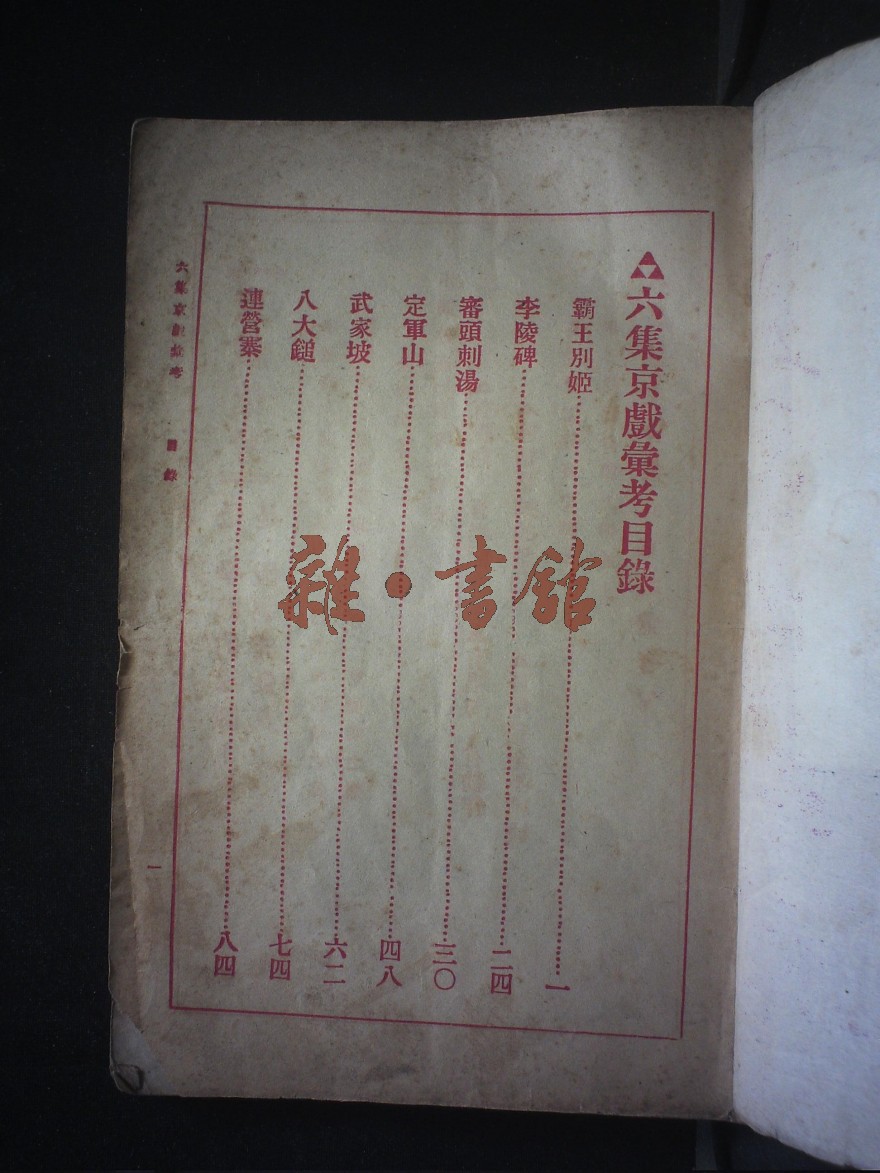 六集京戲彙考目錄
霸王別姬……一
李陵碑……二四
審頭刺湯……三〇
定軍山……四八
武家坡……六二
八大鎚……七四
連營寨……八四
六集京戲彙考 目錄
一
雜·書館